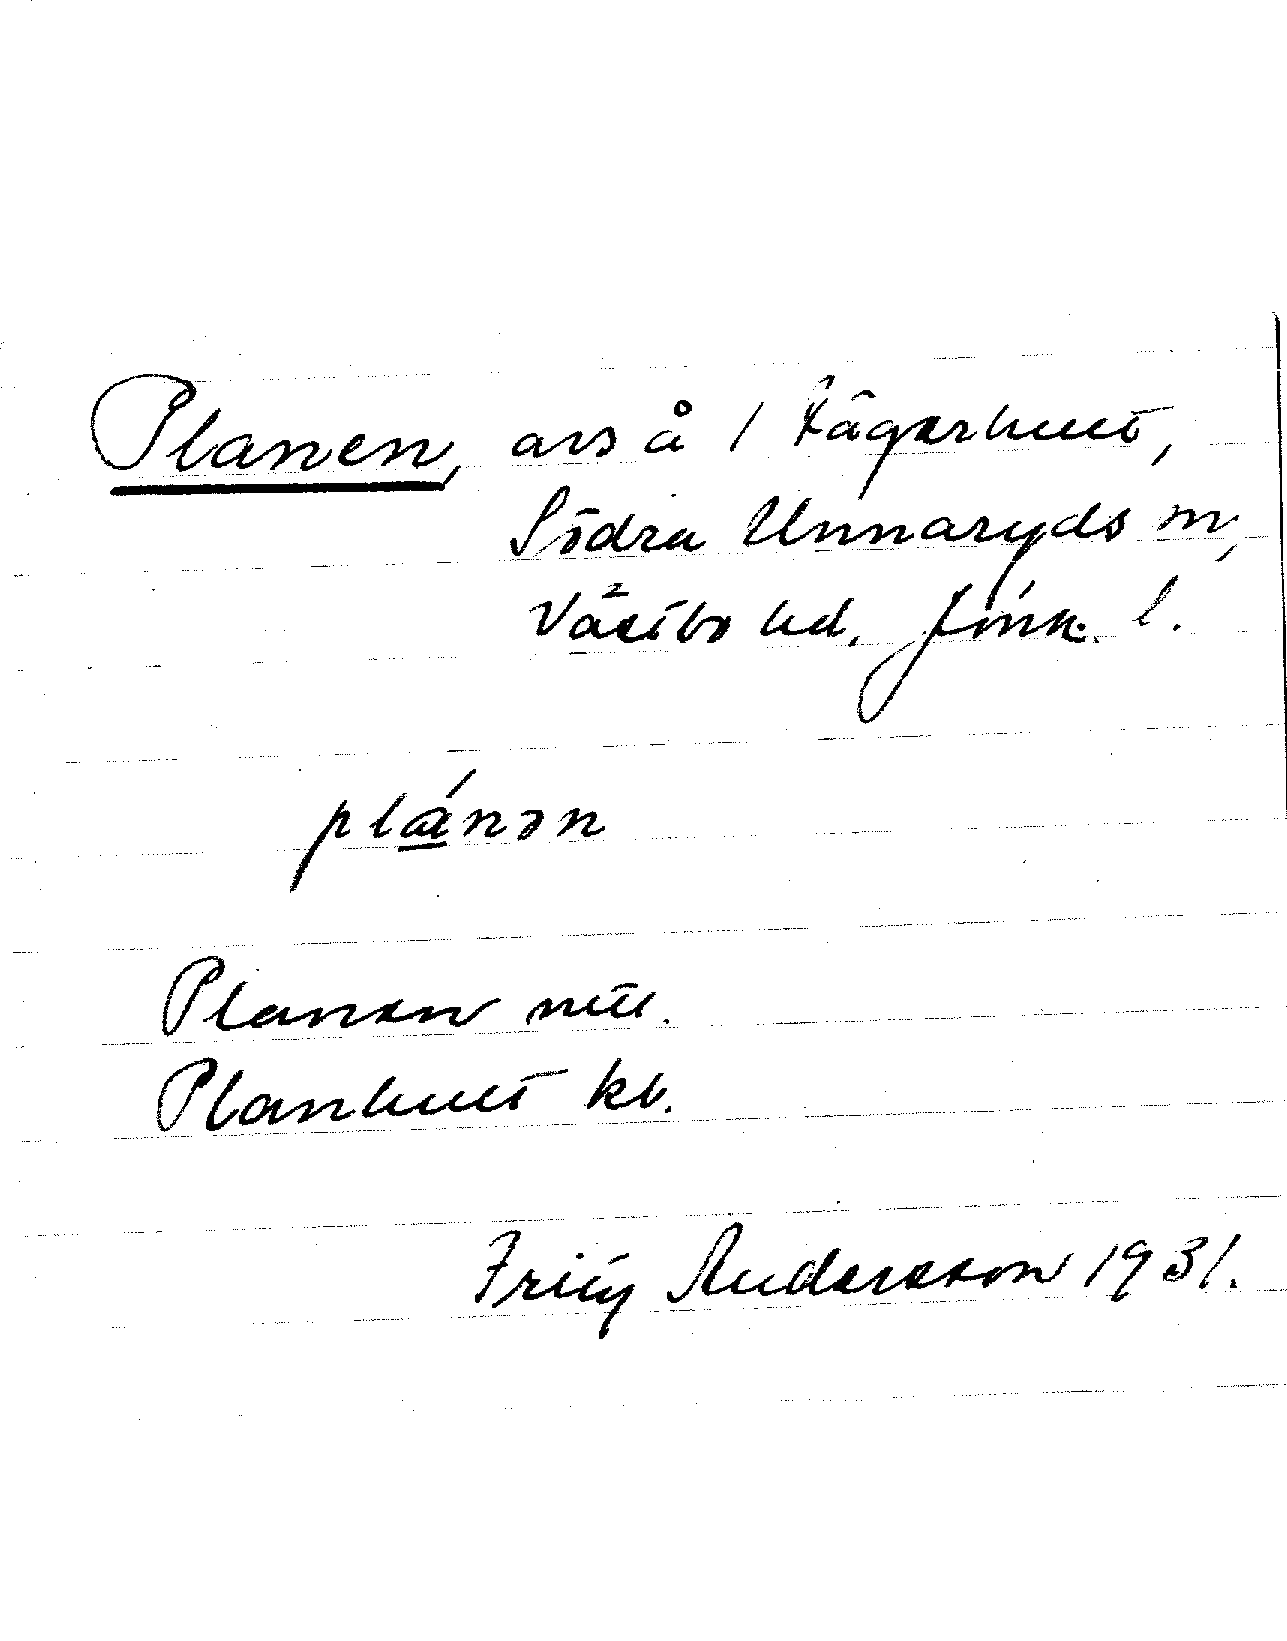 Planen, avs å 1 Fägerhult,
Södra Unnaryds sn,
Västbo hd, Jönk. l.
plánən
Planen mtl.
Planhult kb.
Frig Andersson 1931.